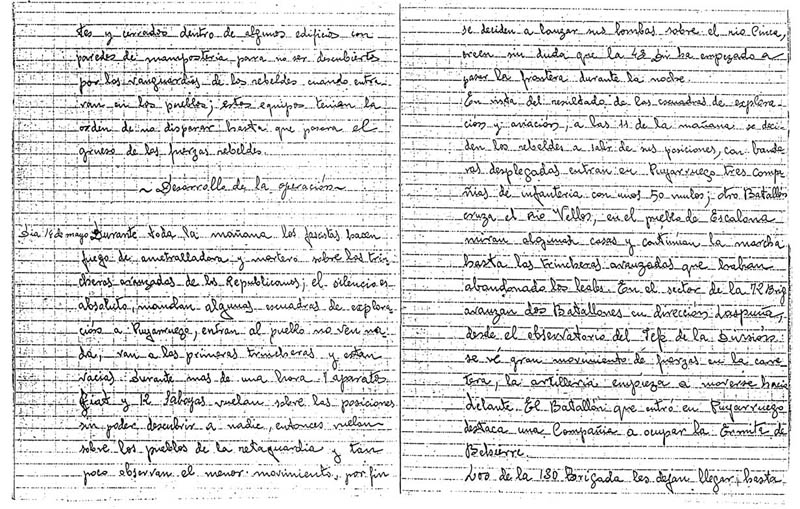 tes y cercados dentro de algunos edificios con
paredes de mamposteria para no ser descubiertos
por las vanguardias de los rebeldes cuando entra-
ran en los pueblos; estos equipos tenian la
orden de no disparar hasta que pasara el
grueso de las fuerzas rebeldes.
~ Desarrollo de la operación ~
Dia 14 de mayo Durante toda la mañana los fascistas hacen
fuego de ametralladora y mortero sobre las trin-
cheras avanzadas de los Republicanos; el silencio es
absoluto, mandan algunas escuadras de explora-
ción a Puyarruego, entran al pueblo no ven na-
da; van a las primeras trincheras y estan
vacias. Durante mas de una hora aparatos
Fiat y 12 Saboyas vuelan sobre las posiciones
sin poder descubrir a nadie, entonces vuelan
sobre los pueblos de la retaguardia y tam
poco observan el menor movimiento, por fin
se deciden a lanzar sus bombas sobre el rio Cinca,
creen sin duda que la 43 Div ha empezado a
pasar la frontera durante la noche.
En vista del resultado de las escuadras de explora-
ción y aviación, a las 11 de la mañana se deci-
den los rebeldes a salir de sus posiciones, con bande
ras desplegadas entran en Puyarruego tres compa-
ñias de infanteria con unos 50 mulos; otro Batallón
cruza el Rio Vellos, en el pueblo de Escalona
miran algunas casas y continuan la marcha
hasta las trincheras avanzadas que habian
abandonado los leales. En el sector de la 72 Brig
avanzan dos Batallones en dirección Laspuña,
desde el observatorio del Jefe de la División
se ve gran movimiento de fuerzas en la carre-
tera, la artilleria empieza a moverse hacia
delante. El Batallón que entró en Puyarruego
destaca una Compañia a ocupar la Ermita de
Belsierre.
Los de la 130 Brigada les dejan llegar hasta